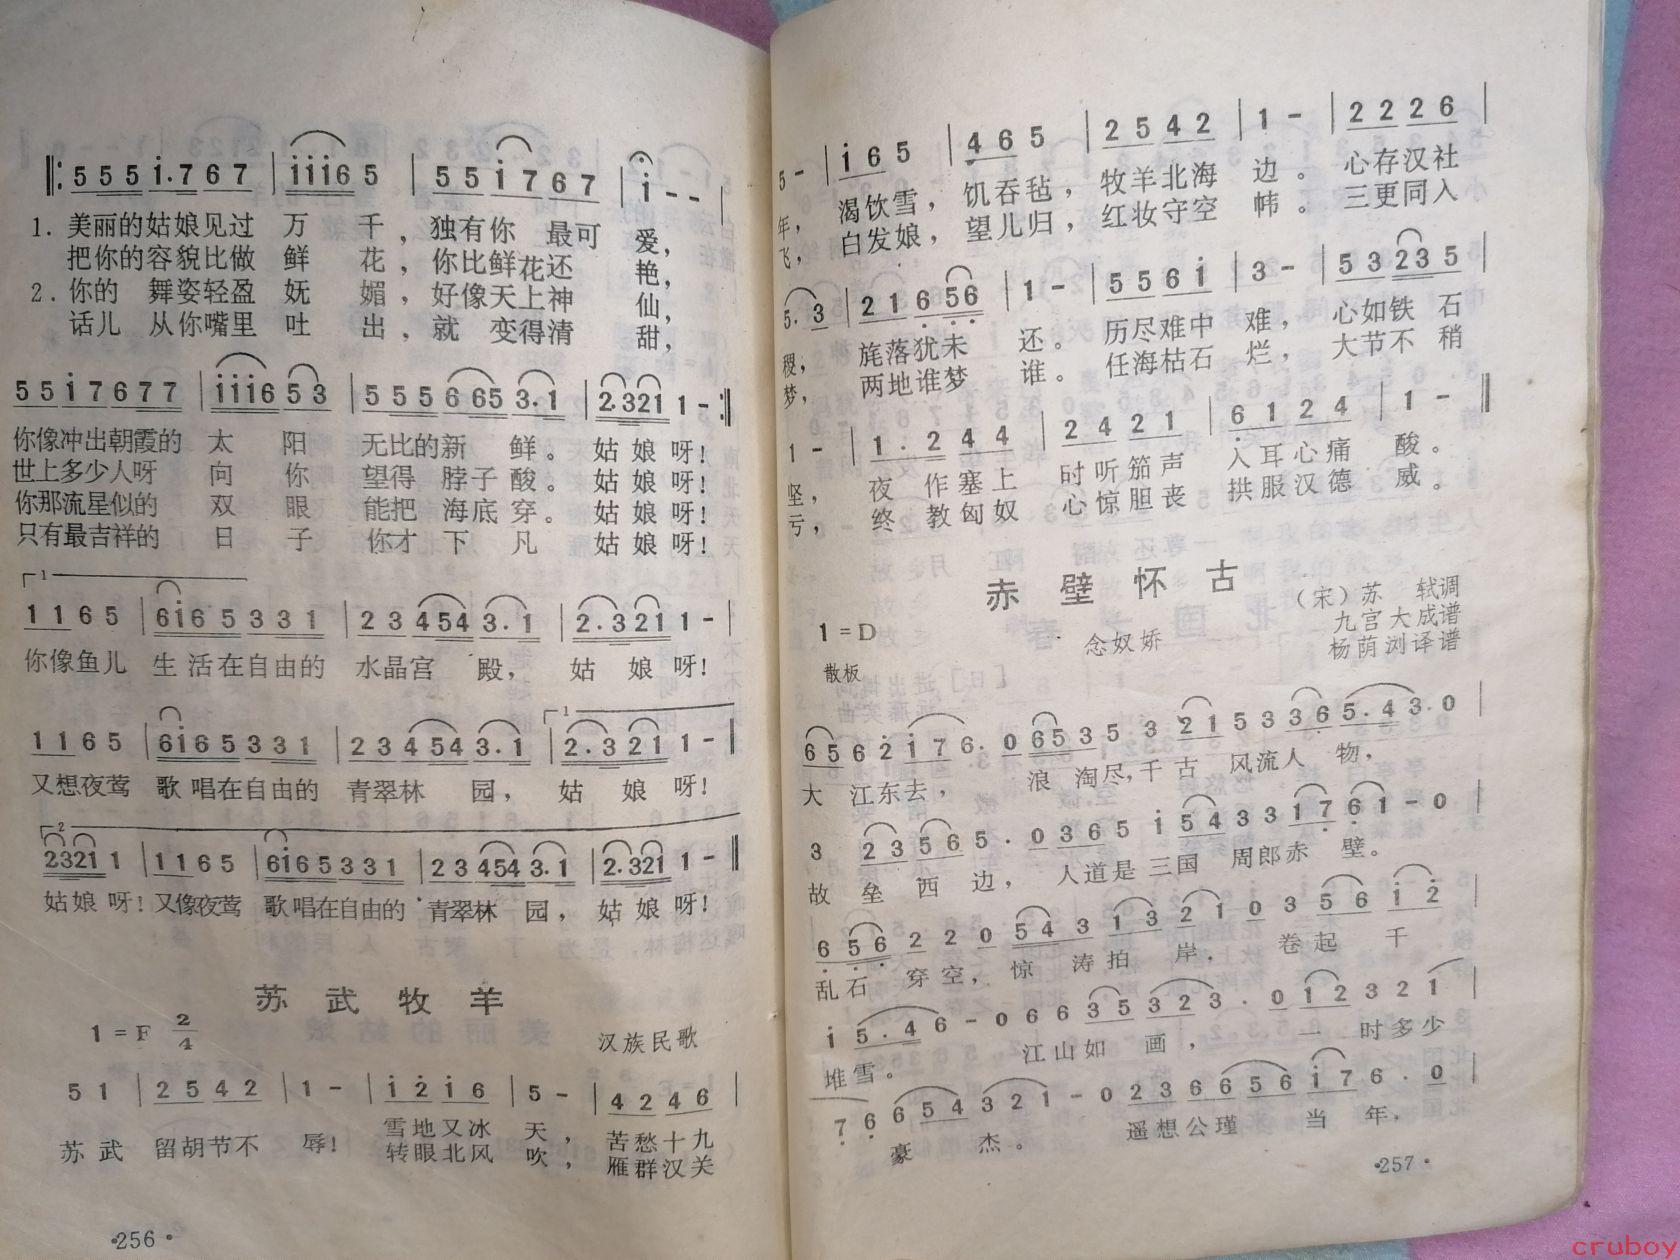 ‖: 5 5 5 i. 7 6 7 | i i i 6 5 | 5 5 i 7 6 7 | i - - |
1. 美丽的姑娘见过 万 千，独有你 最可 爱，
把你的容貌比做 鲜 花，你比鲜花还 艳，
2. 你的 舞姿轻盈 妩 媚，好像天上神 仙，
话儿 从你嘴里 吐 出，就 变得清 甜，
5 5 i 7 6 7 7 | i i i 6 5 3 | 5 5 5 6 6 5 3. 1 | 2. 3 2 1 1 - :‖
你像冲出朝霞的 太 阳 无比的新 鲜。姑 娘 呀！
世上多少人呀 向 你 望得 脖子 酸。姑 娘 呀！
你那流星似的 双 眼 能把 海底 穿。姑 娘 呀！
只有最吉祥的 日 子 你才 下 凡 姑 娘 呀！
1
1 1 6 5 | 6 i 6 5 3 3 3 1 | 2 3 4 5 4 3. 1 | 2. 3 2 1 1 - |
你像鱼儿 生 活在自由的 水晶宫 殿，姑 娘 呀！
1
1 1 6 5 | 6 i 6 5 3 3 3 1 | 2 3 4 5 4 3. 1 | 2. 3 2 1 1 - ‖
又想夜莺 歌 唱在自由的 青翠林 园，姑 娘 呀！
2
2 3 2 1 1 | 1 1 6 5 | 6 i 6 5 3 3 3 1 | 2 3 4 5 4 3. 1 | 2. 3 2 1 1 - ‖
姑娘 呀！又像夜莺 歌唱在自由的 青翠林 园，姑 娘 呀！
苏 武 牧 羊
1 = F 2/4
汉族民歌
5 1 | 2 5 4 2 | 1 - | i 2 i 6 | 5 - | 4 2 4 6 |
雪地又冰 天，苦愁十九
苏 武 留胡节不 辱！
转眼北风 吹，雁群汉关
·256·
5 - | i 6 5 | 4 6 5 | 2 5 4 2 | 1 - | 2 2 2 6 |
年，渴饮雪，饥吞毡，牧羊北海 边。心存汉社
飞，白发娘，望儿归，红妆守空 帏。三更同入
5. 3 | 2 1 6 5 6 | 1 - | 5 5 6 i | 3 - | 5 3 2 3 5 |
稷；旄落犹未 还。历尽难中 难，心如铁 石
梦，两地谁梦 谁。任海枯石 烂，大节不 稍
1 - | 1. 2 4 4 | 2 4 2 1 | 6 1 2 4 | 1 - ‖
坚，夜 作塞上 时听笳声 入耳心痛 酸。
亏，终 教匈奴 心惊胆丧 拱服汉德 威。
赤 壁 怀 古
1 = D
念奴娇
（宋）苏 轼调
九宫大成谱
杨荫浏译谱
散板
6 5 6 2 i 7 6. 0 6 5 3 5 3 2 1 5 3 3 6 5. 4 3. 0
大 江东去，浪 淘尽，千古 风流人 物，
3 2 3 5 6 5. 0 3 6 5 i 5 4 3 3 1 7 6 1 - 0
故 垒 西 边，人道是三国 周郎赤 壁。
6 5 6 2 2 0 5 4 3 1 3 2 1 0 3 5 6 i 2
乱石 穿空，惊 涛拍 岸，卷起 千
i 5. 4 6 - 0 6 6 3 5 3 2 3. 0 1 2 3 2 1
堆雪。江山如 画，一 时多少
7 6 6 5 4 3 2 1 - 0 2 3 6 6 5 6 i 7 6. 0
豪 杰。遥想公瑾 当 年，
·257·
cruboy